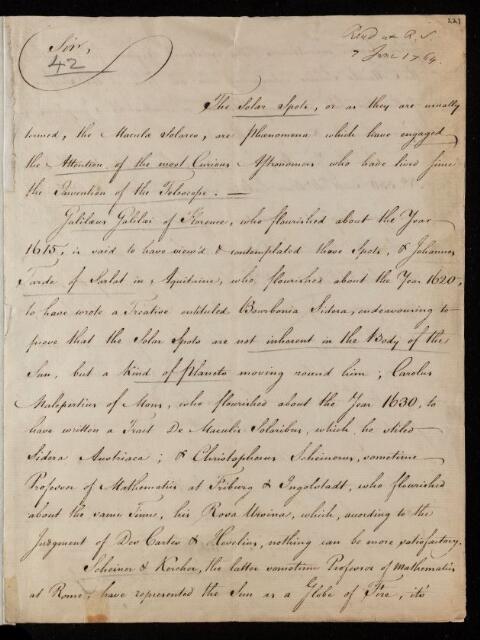 221
Sir,
42
Read at R. S.
7 June 1764.
The Solar Spots, or as they are usually
termed, the Macula Solares, are Phenomena which have engaged
the Attention of the most Curious Astronomers who have lived since
the Invention of the Telescope. —
Galilæus Galilæi of Florence, who flourished about the Year
1615, is said to have view'd & contemplated those Spots, & Johannes
Tarde of Sarlat in Aquitaine, who flourished about the Year 1620,
to have wrote a Treatise entituled Bourbonia Sidera, endeavouring to
prove that the Solar Spots are not inherent in the Body of the
Sun, but a kind of planets moving round him; Carolus
Malepertius of Mons, who flourished about the Year 1630, to
have written a Tract De Maculis Solaribus, which he stiles
Sidera Austriaca; & Christophorus Scheinerus, sometime
Professor of Mathematics at Friberg & Ingolstadt, who flourished
about the same Time, his Rosa Ursina, which, according to the
Judgment of Des Cartes & Hevelius, nothing can be more satisfactory.
Scheiner & Kercher, the latter sometime Professor of Mathematics
at Rome, have represented the Sun as a Globe of Fire, it's